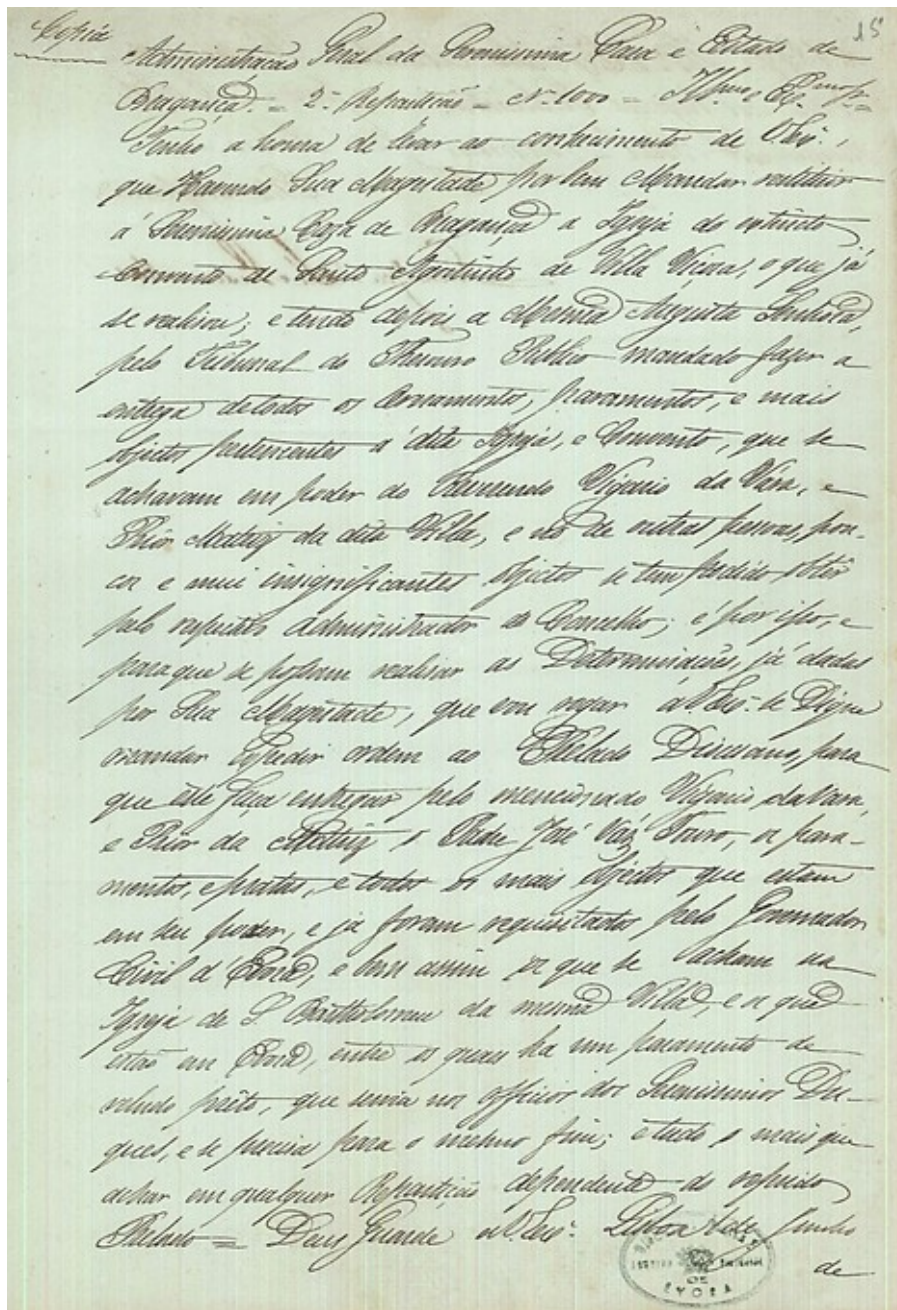 Copia
15
Administração Geral da Serenissima Caza e Estado de
Bragança. = 2ª Repartição = Nº 1000 = Illmo e Exmo Sr =
Tenho a honra de levar ao conhecimento de V. Exª.,
que Havendo Sua Magestade por bem Mandar restituir
á Serenissima Caza de Bragança a Igreja do extincto
Convento de Santo Agostinho de Villa Viçosa, o que já
se realisou; e tendo depois a Mesma Augusta Senhora,
pelo Tribunal do Thesouro Publico mandado fazer a
entrega de todos os Ornamentos, paramentos, e mais
objectos pertencentes á dita Igreja, e Convento, que se
achavam em poder do Reverendo Vigario da Vara, e
Prior Matriz da dita Villa, e no de outras pessoas, pou-
cos e mui insignificantes objectos se tem podido obter
pelo respectivo Administrador do Concelho; é por isso, e
para que se possam realisar as Determinações, já dadas
por Sua Magestade, que vou rogar a V. Exª. se Digne
mandar expedir ordem ao Prelado Diocesano, para
que este faça entregar pelo mencionado Vigario da Vara,
e Prior da Matriz o Padre José Vaz Touro, os para-
mentos, e pratas, e todos os mais objectos que estam
em seu poder, e já foram requisitados, pelo Governador
Civil d'Evora, e bem assim os que se acham na
Igreja de S. Bartholomeu da mesma Villa, e os que
estão em Evora, entre os quaes ha um paramento de
veludo preto, que servia nos officios dos Serenissimos Du-
ques, e se precisa para o mesmo fim; e tudo o mais que
achar em qualquer Repartição dependente do referido
Prelado = Deus Guarde a V. Exª. Lisboa de Junho
de
EVORA